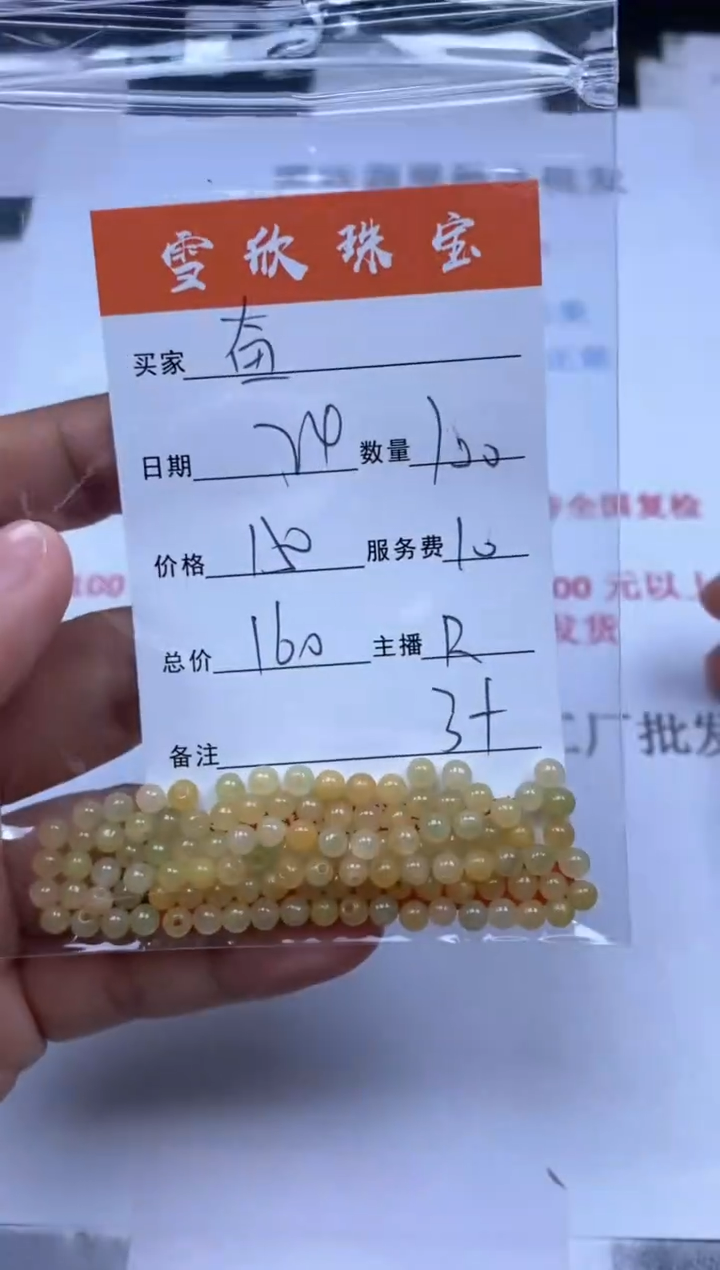 雪欣珠宝
买家 奋
日期 24 数量 100
价格 150 服务费 10
总价 160 主播 R
备注 3+
全国复检
100
00 元以上
发货
工厂批发